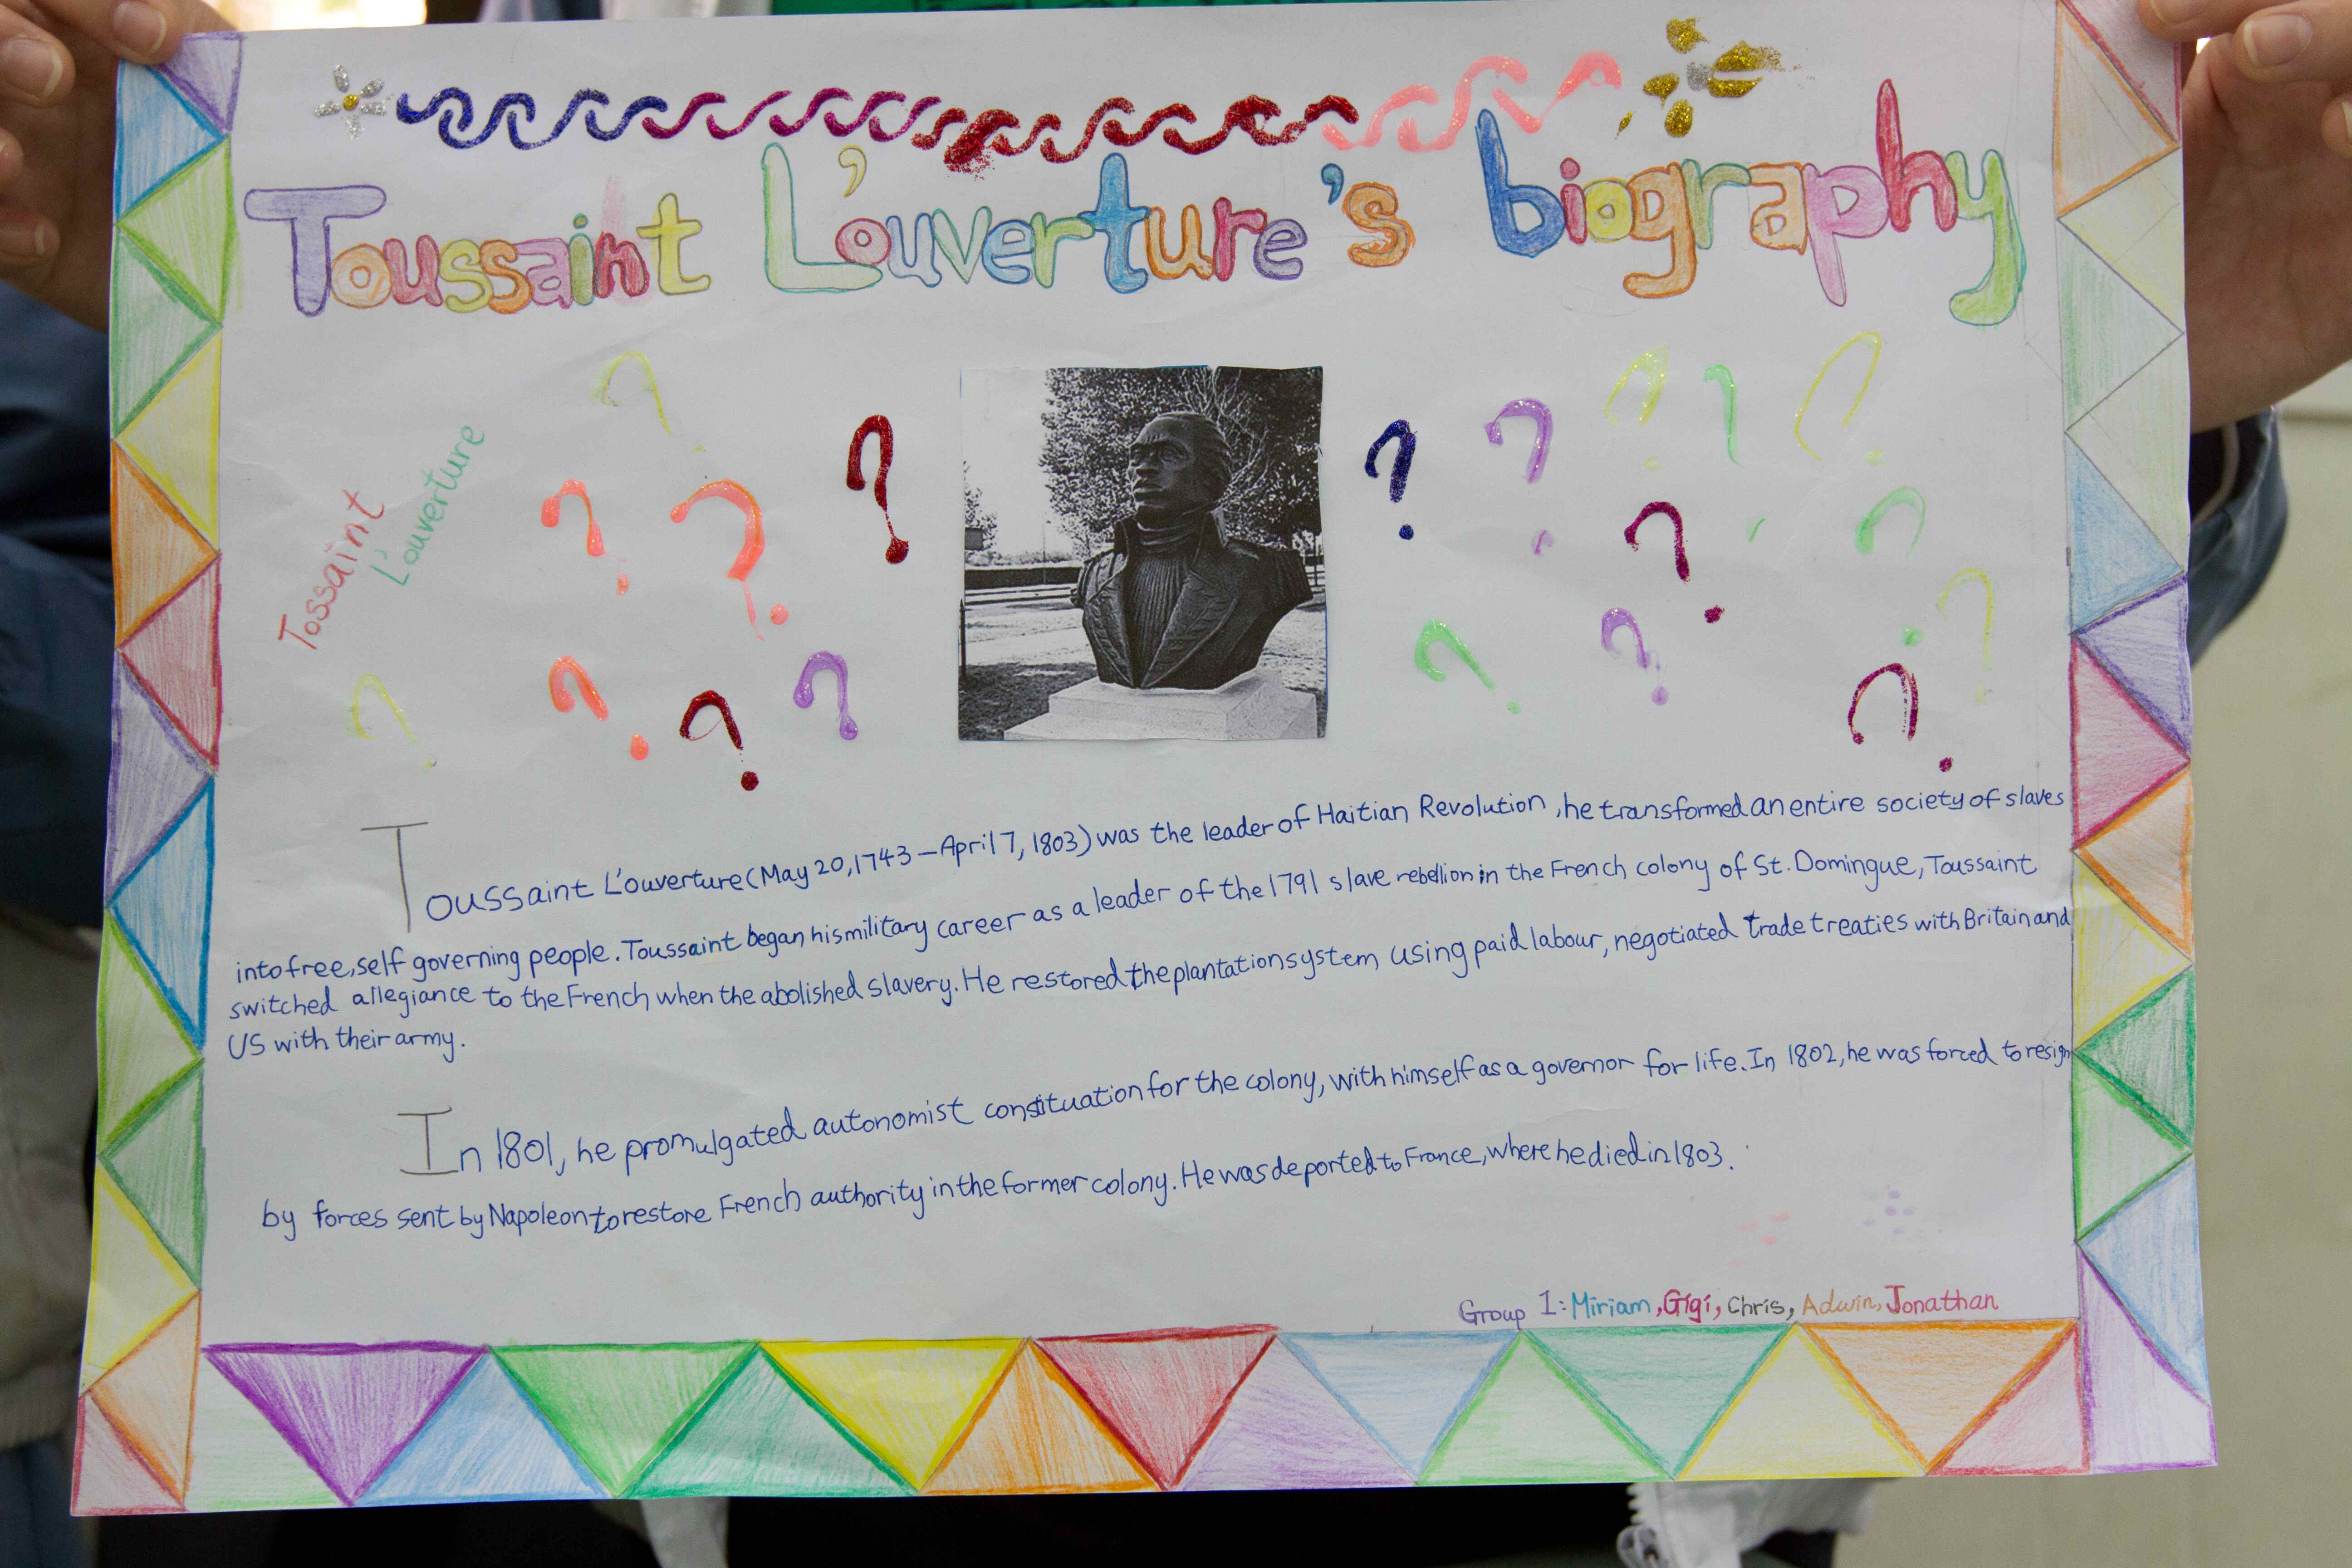 Toussaint L'ouverture's biography
Tossaint
L'ouverture
Toussaint L'ouverture (May 20, 1743 – April 7, 1803) was the leader of Haitian Revolution, he transformed an entire society of slaves
into free, self governing people. Toussaint began his military career as a leader of the 1791 slave rebellion in the French colony of St. Domingue, Toussaint
switched allegiance to the French when the abolished slavery. He restored the plantation system using paid labour, negotiated trade treaties with Britain and
US with their army.
In 1801, he promulgated autonomist constituation for the colony, with himself as a governor for life. In 1802, he was forced to resign
by forces sent by Napoleon to restore French authority in the former colony. He was deported to France, where he died in 1803.
Group 1: Miriam, Gigi, Chris, Adwin, Jonathan